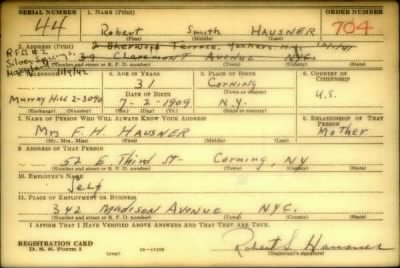 SERIAL NUMBER 1. NAME (Print) ORDER NUMBER
44 Robert Smith HAUSNER 704
(First) (Middle) (Last)
2. ADDRESS (Print)
R.F.D. #2 2 Sherwood Terrace, Yonkers N.Y.
Silver Springs 39 Claremont Avenue NYC
(Number and street or R. F. D. number) (Town) (County) (State)
3. TELEPHONE 4. AGE IN YEARS 5. PLACE OF BIRTH 6. COUNTRY OF CITIZENSHIP
31 Corning
DATE OF BIRTH (Town or county)
Murray Hill 2-3090 7-2-1909 N.Y. U.S.
(Exchange) (Number) (Mo.) (Day) (Yr.) (State or country)
7. NAME OF PERSON WHO WILL ALWAYS KNOW YOUR ADDRESS 8. RELATIONSHIP OF THAT PERSON
Mrs F.H. HAUSNER Mother
(Mr., Mrs., Miss) (First) (Middle) (Last)
9. ADDRESS OF THAT PERSON
52 E Third St- Corning, NY
(Number and street or R. F. D. number) (Town) (County) (State)
10. EMPLOYER'S NAME
Self
11. PLACE OF EMPLOYMENT OR BUSINESS
342 Madison Avenue NYC.
(Number and street or R. F. D. number) (Town) (County) (State)
I AFFIRM THAT I HAVE VERIFIED ABOVE ANSWERS AND THAT THEY ARE TRUE.
REGISTRATION CARD
D. S. S. Form 1 Robert S. Hausner
(over) (Registrant's signature)